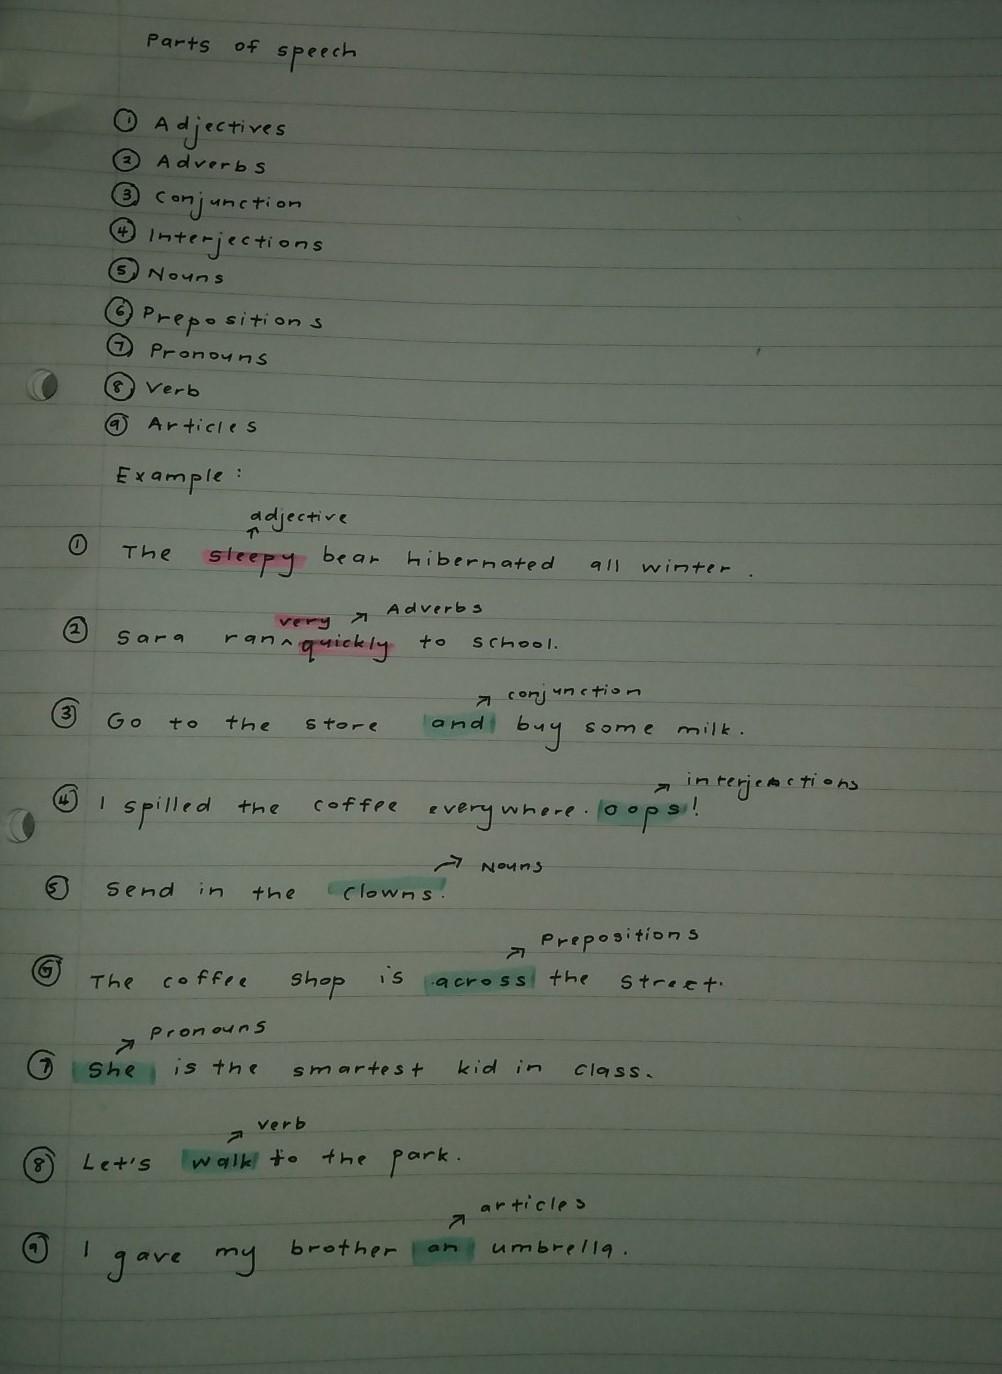 Parts of speech
① Adjectives
② Adverbs
③ Conjunction
④ Interjections
⑤ Nouns
⑥ Prepositions
⑦ Pronouns
⑧ Verb
⑨ Articles
Example :
adjective
① The sleepy bear hibernated all winter .
very ↗ Adverbs
② Sara ran ^ quickly to school.
↗ conjunction
③ Go to the store and buy some milk .
↗ interjections
④ I spilled the coffee everywhere. oops !
↗ Nouns
⑤ Send in the clowns.
↗ Prepositions
⑥ The coffee shop is across the street.
↗ Pronouns
⑦ She is the smartest kid in class.
↗ verb
⑧ Let's walk to the park .
↗ articles
⑨ I gave my brother an umbrella .